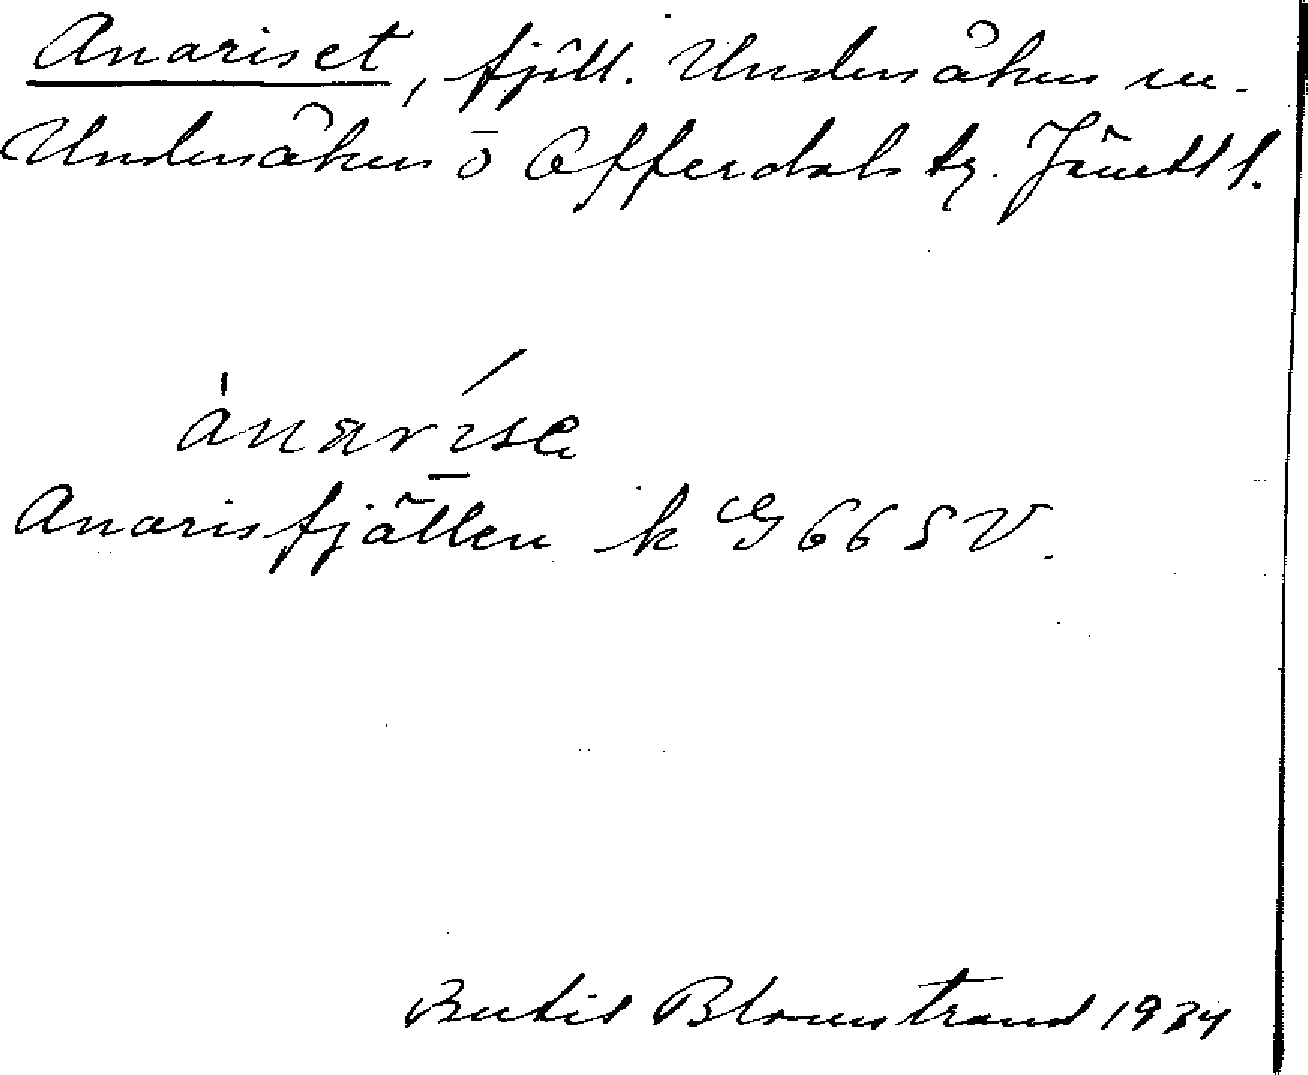 Anariset, fjäll. Undersåkers sn.
Undersåkers o Offerdals tg. Jämtl l.
ànaríse
Anarisfjällen k G 66 SV.
Bertil Blomstrand 1934